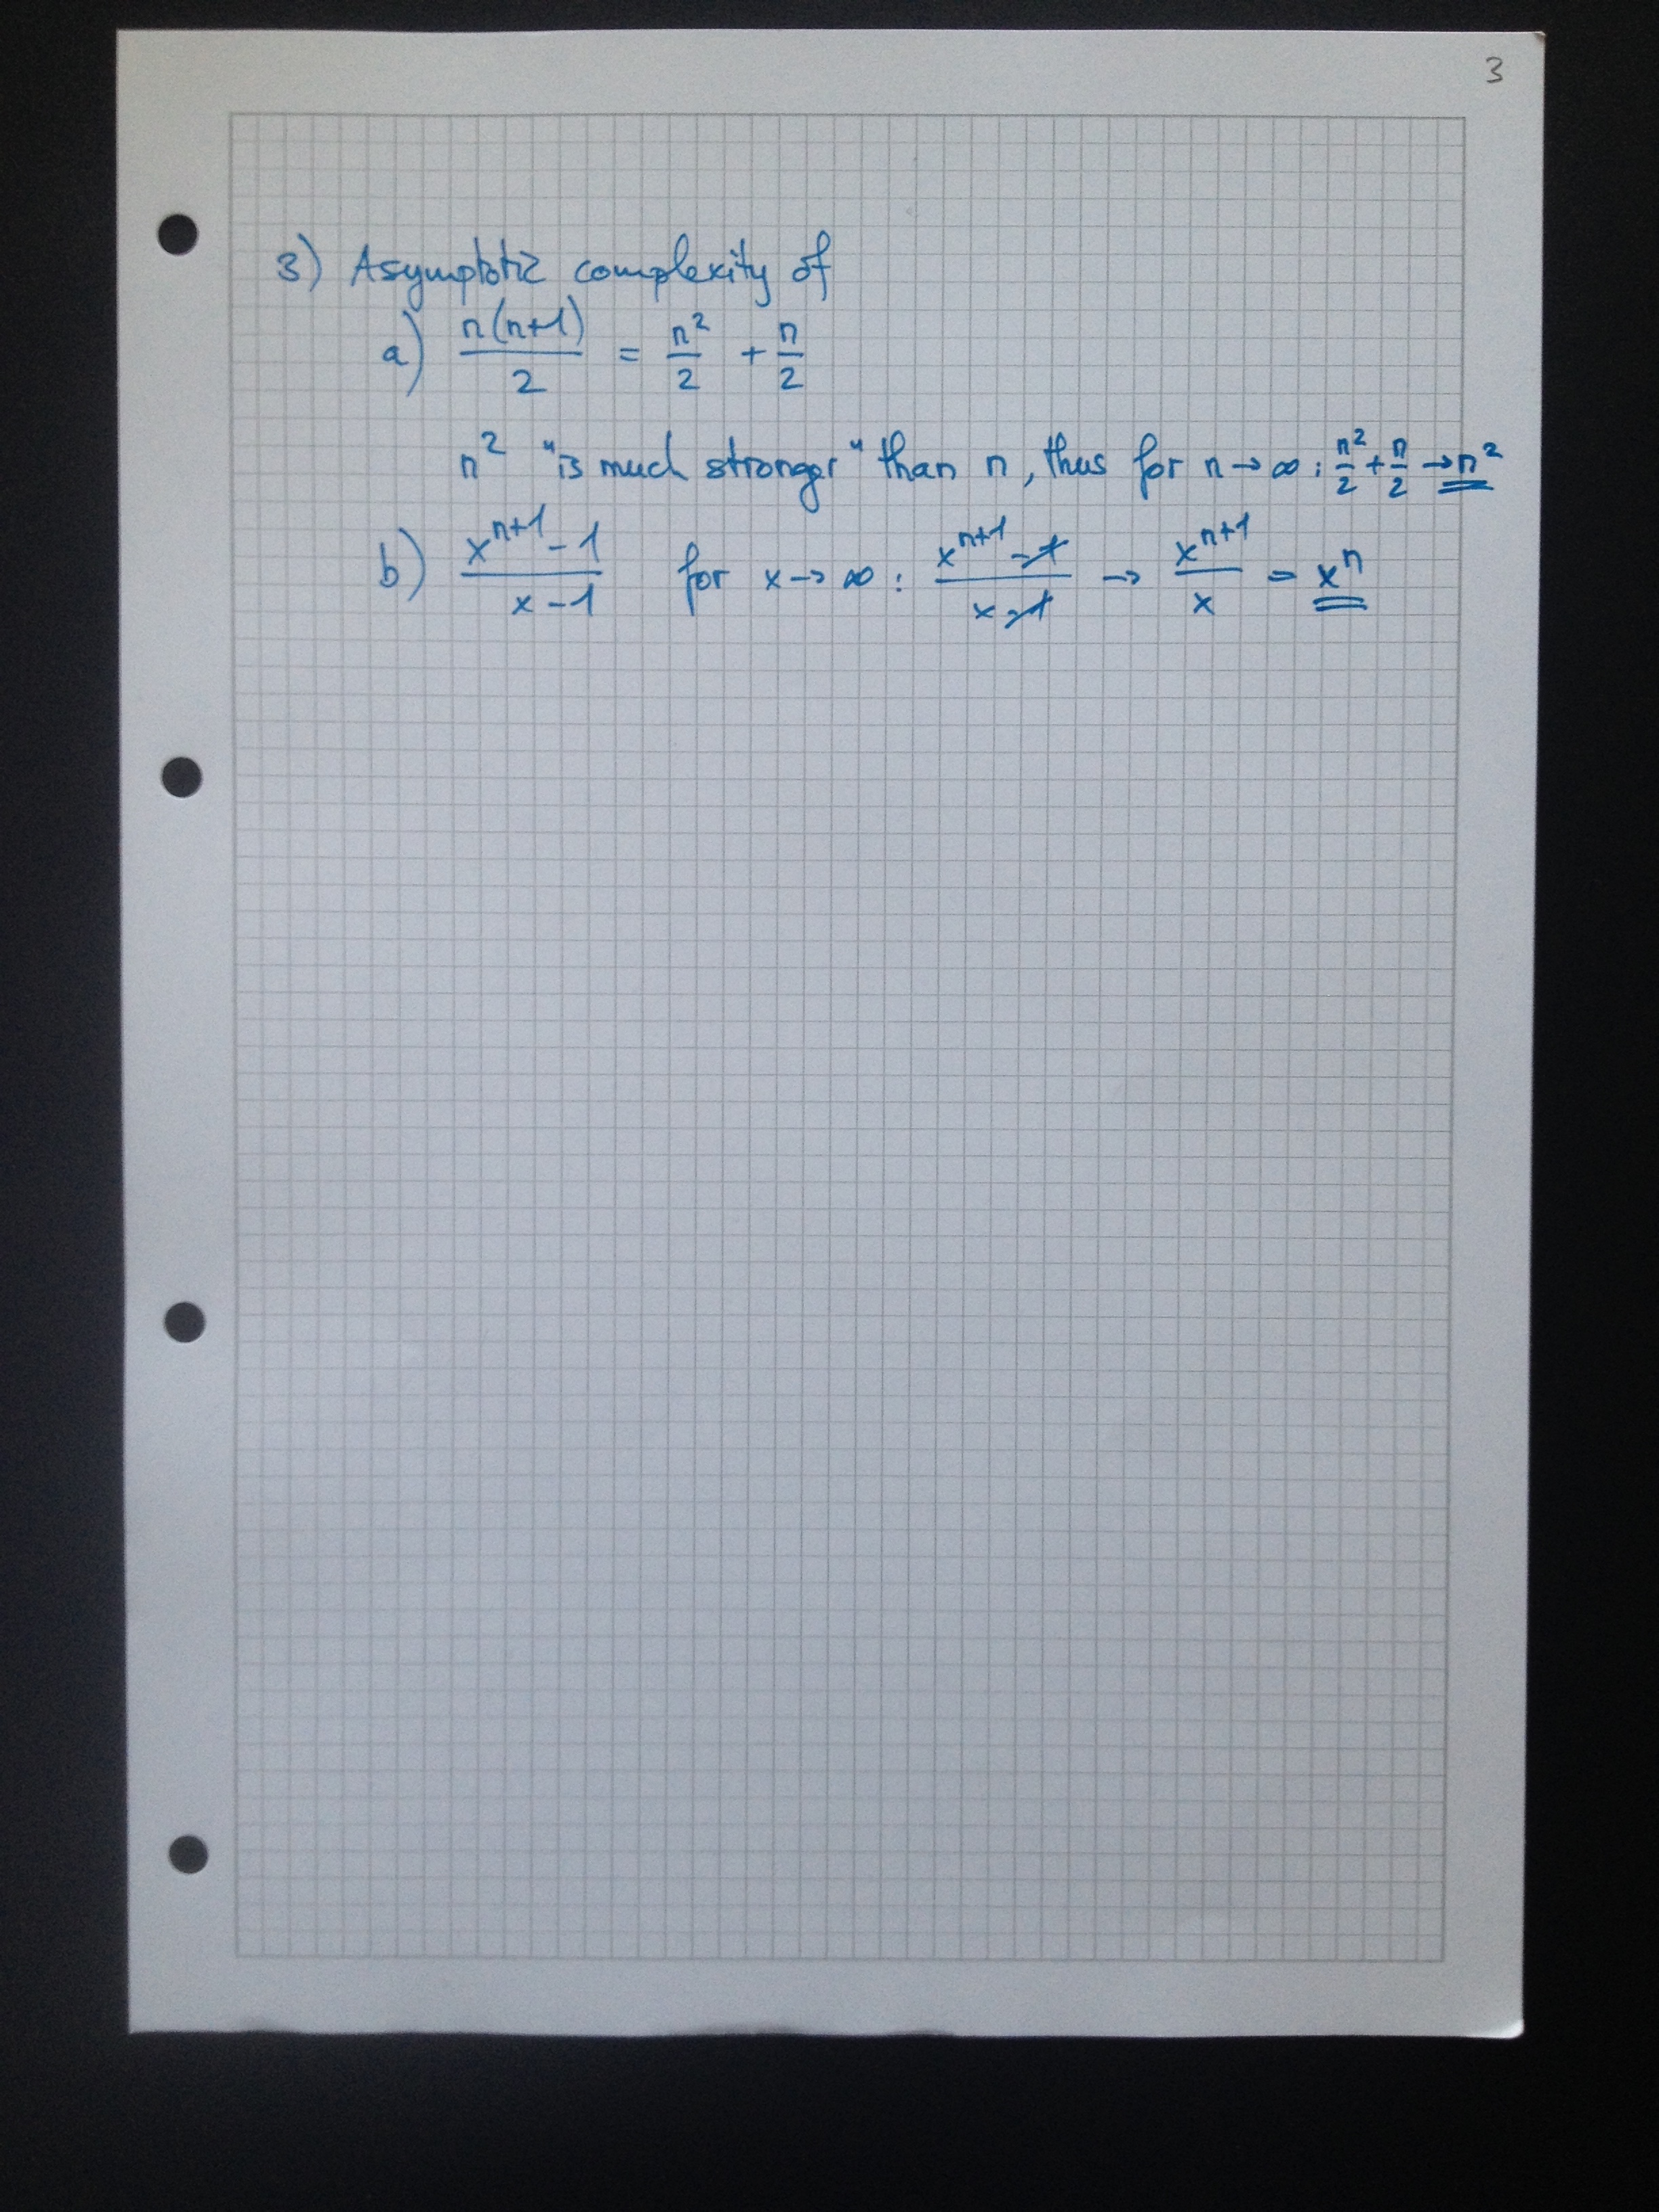 3
3) Asymptotic complexity of
a) n(n+1)/2 = n²/2 + n/2
n² "is much stronger" than n, thus for n → ∞ : n²/2 + n/2 → n²
b) (xⁿ⁺¹ - 1)/(x - 1) for x → ∞ : (xⁿ⁺¹ - 1)/(x - 1) → xⁿ⁺¹/x = xⁿ